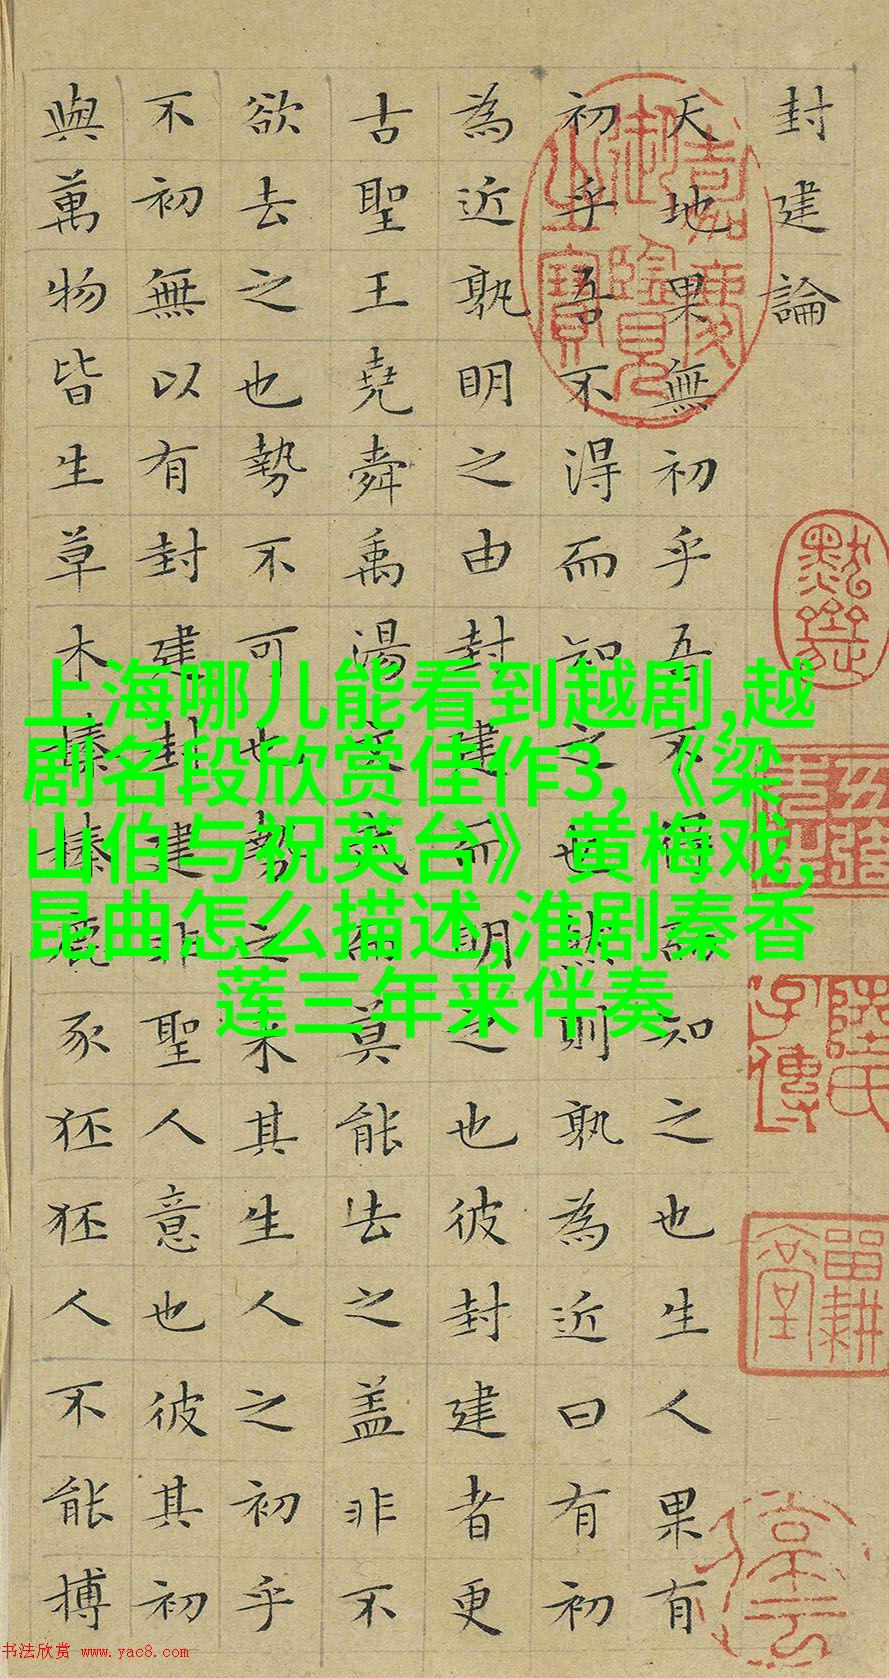 封建論
天地果無初乎吾不得而知之也生人果有
初乎吾不得而知之也然則孰為近曰有初
為近孰明之由封建而明之也彼封建者更
古聖王堯舜禹湯文武而莫能去之盖非不
欲去之也勢不可也勢之来其生人之初乎
不初無以有封建封建非聖人意也彼其初
與萬物皆生草木榛榛鹿豕狉狉人不能搏
嘉慶御覽之寶
上海哪儿能看到越剧,越
剧名段欣赏佳作3,《梁
山伯与祝英台》黄梅戏,
昆曲怎么描述,淮剧秦香
莲三年来伴奏
书法欣赏 www.yac8.com